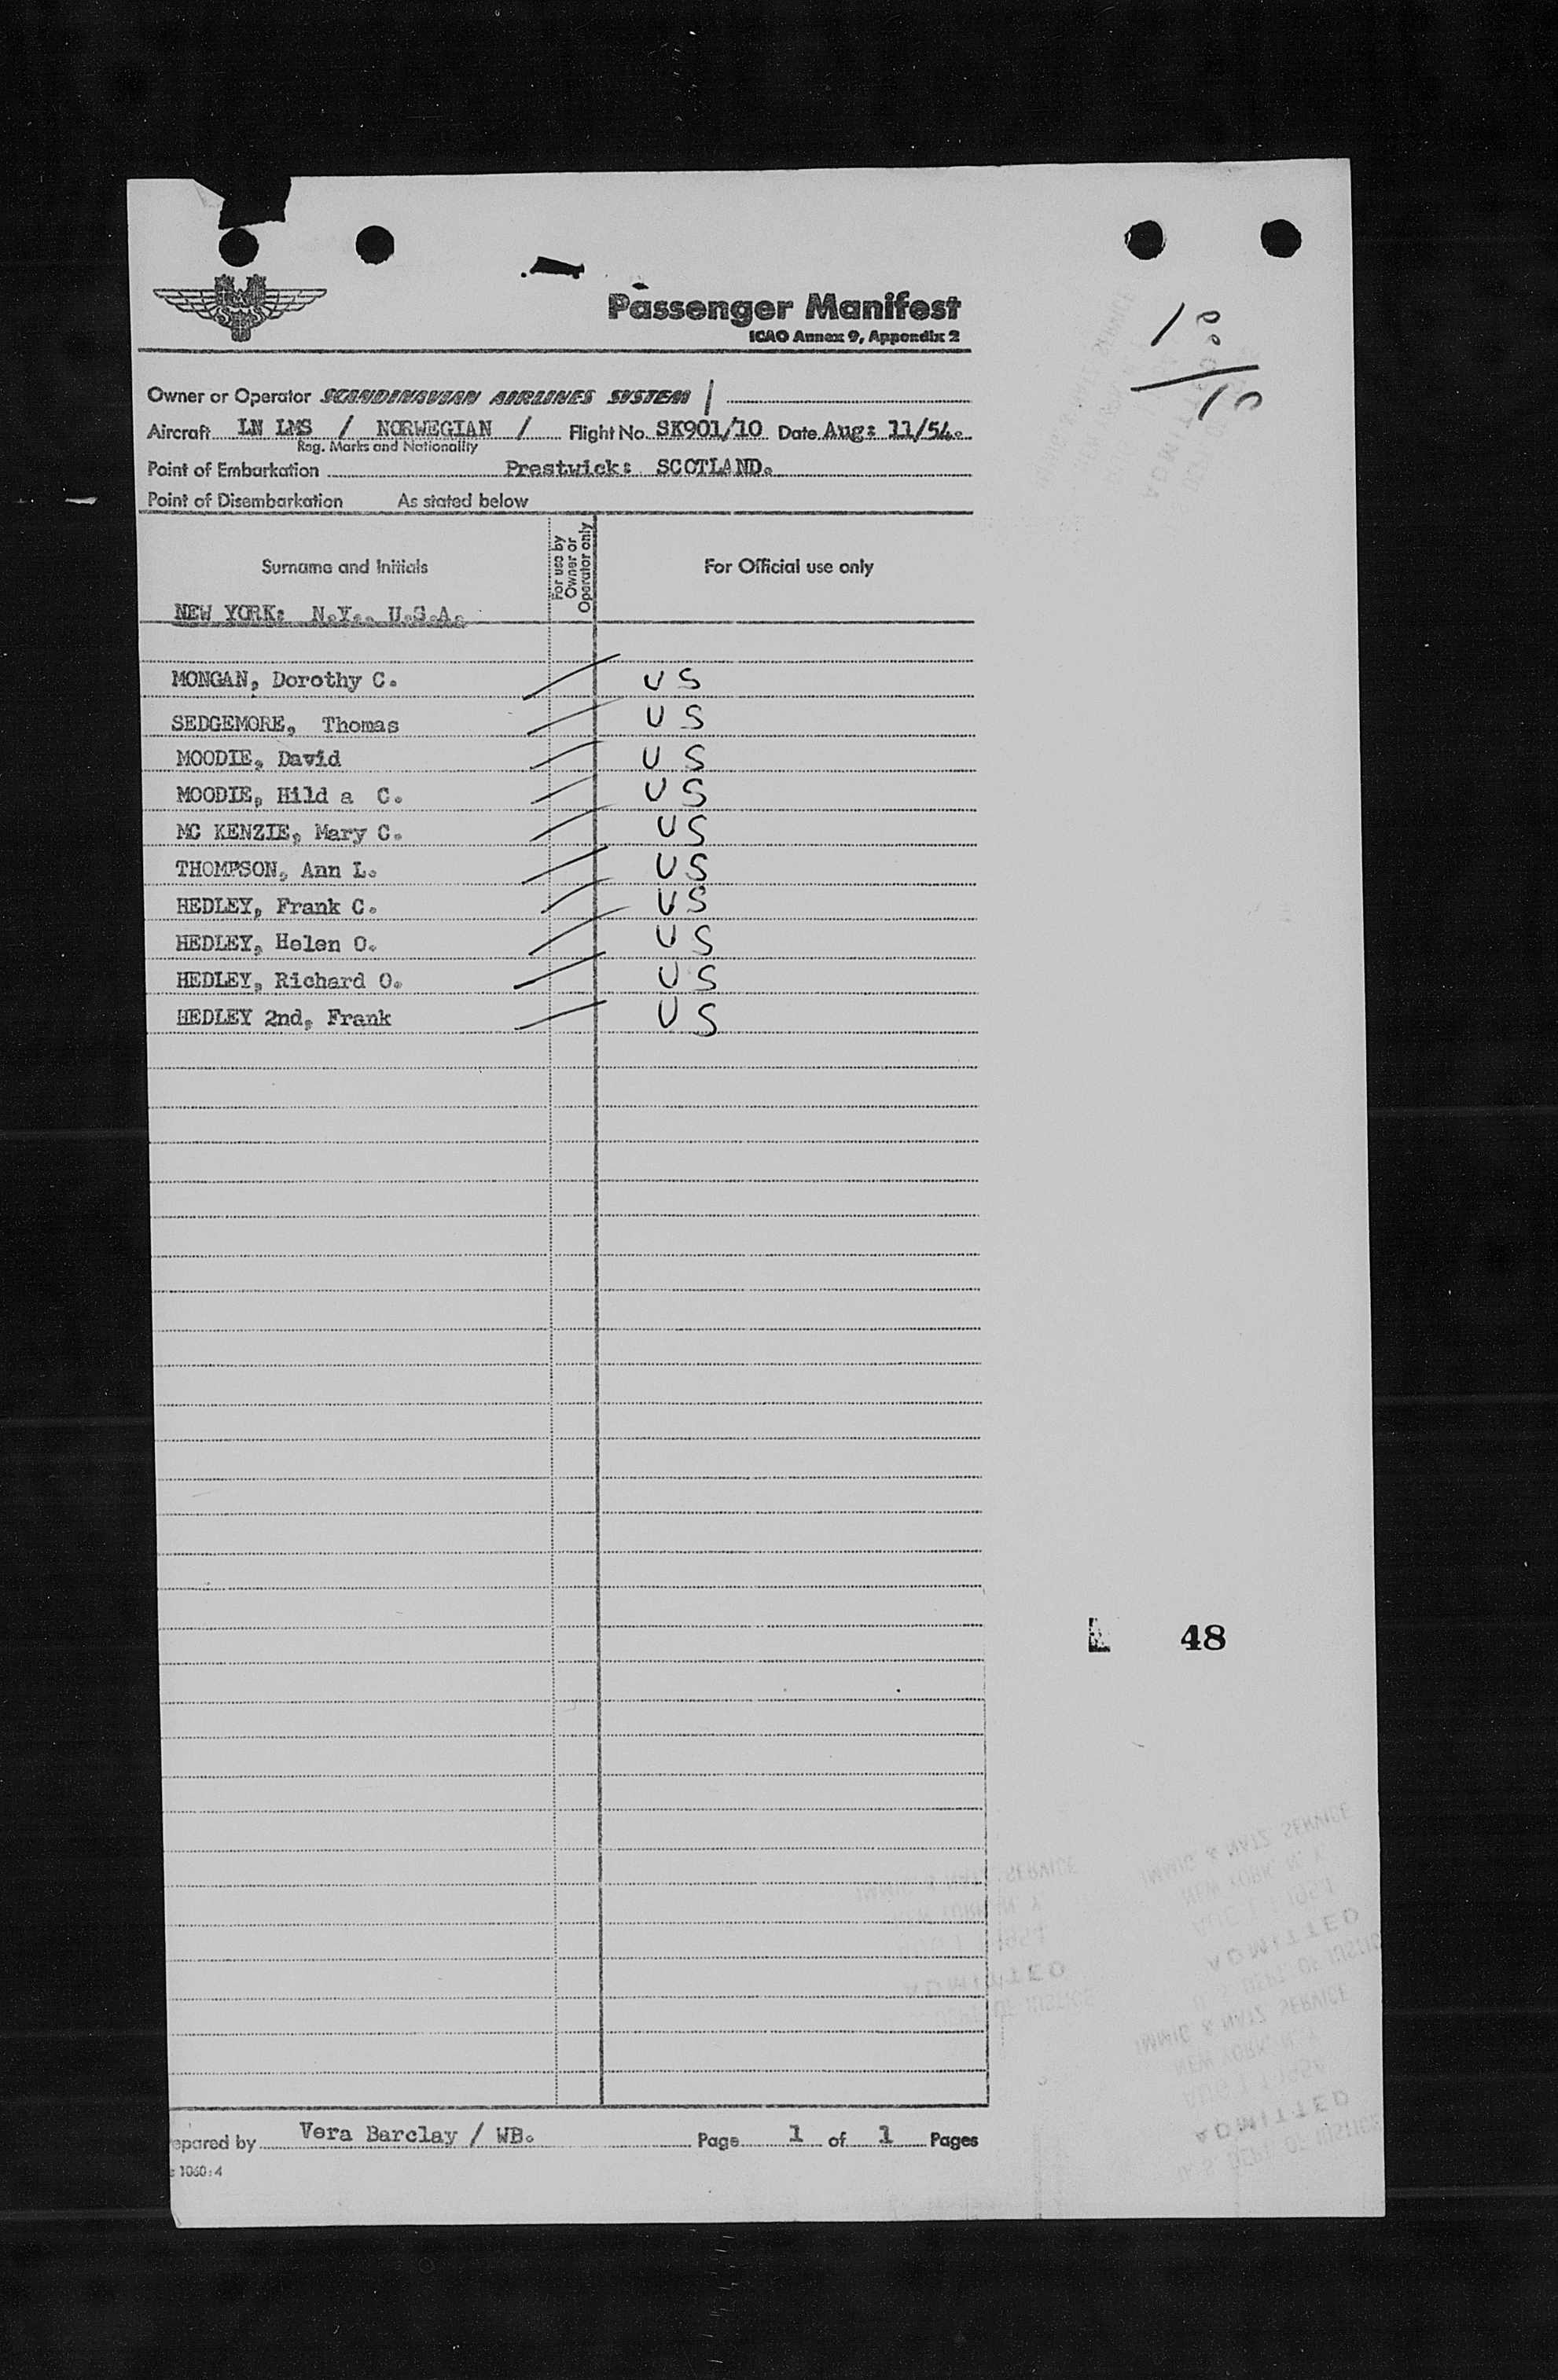 Passenger Manifest
ICAO Annex 9, Appendix 2
Owner or Operator SCANDINAVIAN AIRLINES SYSTEM /
Aircraft LN LMS / NORWEGIAN / Flight No. SK901/10 Date Aug: 11/54.
Reg. Marks and Nationality
Point of Embarkation Prestwick: SCOTLAND.
Point of Disembarkation As stated below
Surname and Initials For use by Owner or Operator only For Official use only
NEW YORK: N.Y., U.S.A.
MONGAN, Dorothy C. U S
SEDGEMORE, Thomas U S
MOODIE, David U S
MOODIE, Hild a C. U S
MC KENZIE, Mary C. U S
THOMPSON, Ann L. U S
HEDLEY, Frank C. U S
HEDLEY, Helen O. U S
HEDLEY, Richard O. U S
HEDLEY 2nd, Frank U S
48
IMMIG & NATZ SERVICE
NEW YORK, N. Y.
ADMITTED
U. S. DEPT. OF JUSTICE
IMMIG & NATZ SERVICE
NEW YORK, N. Y.
AUG 11 1954
ADMITTED
U. S. DEPT. OF JUSTICE
epared by Vera Barclay / WB. Page 1 of 1 Pages
1060:4